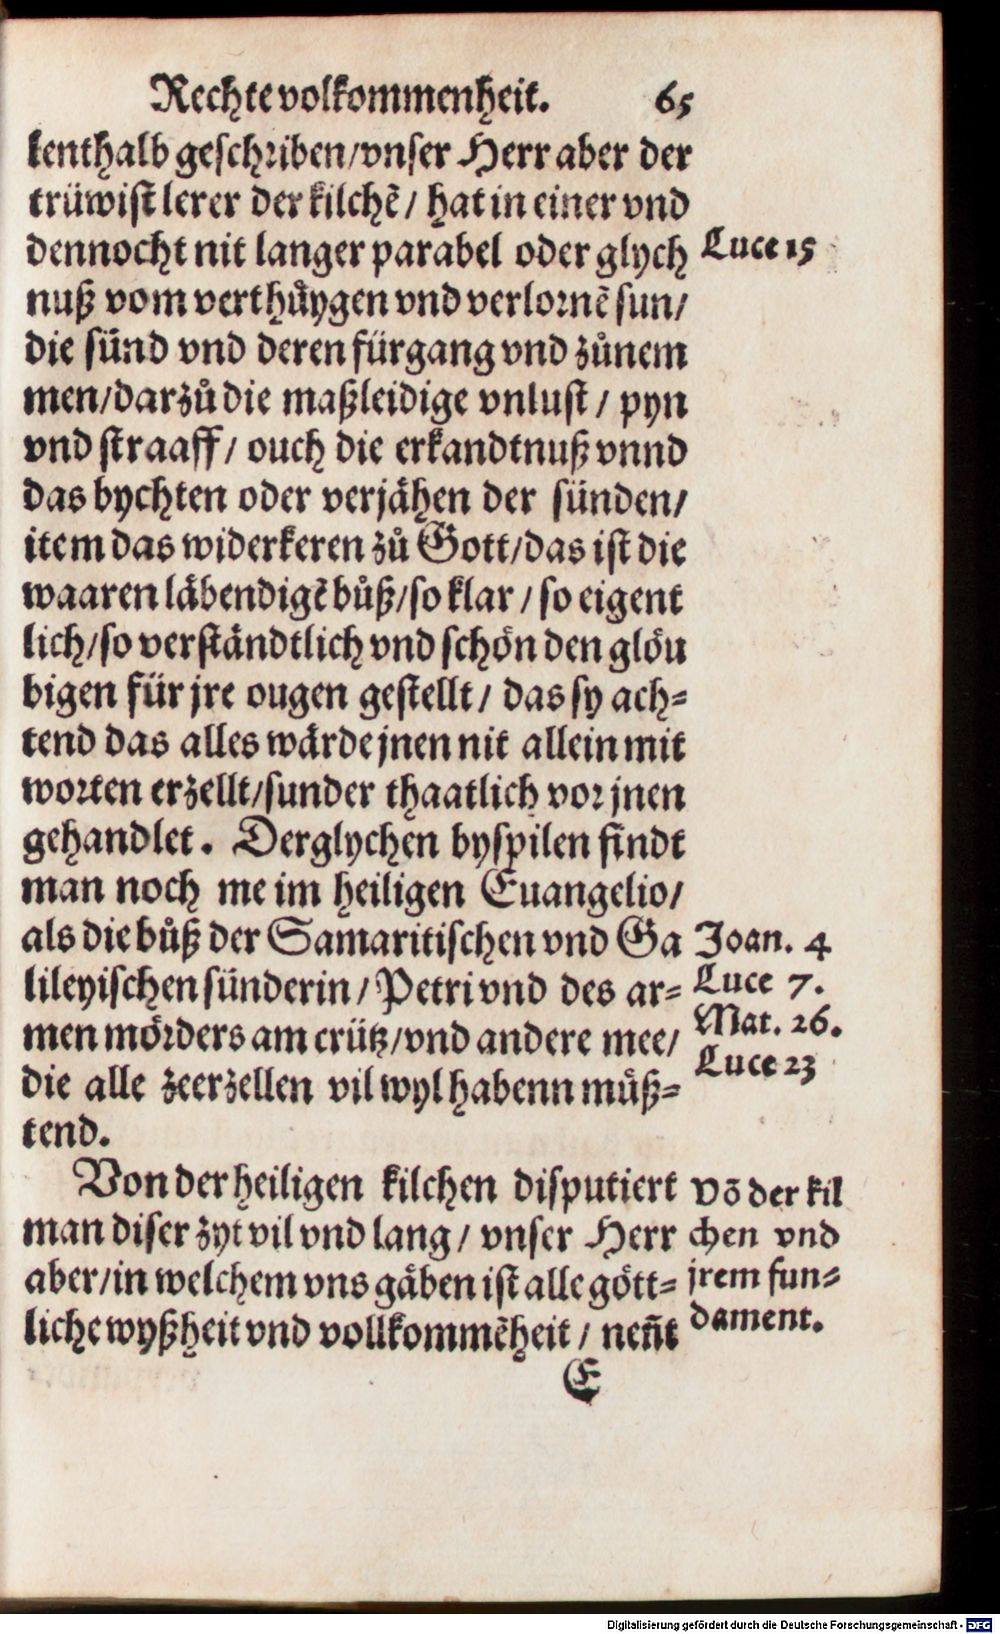 Rechte volkommenheit. 65
kenthalb geschriben/vnser Herr aber der
trüwist lerer der kilchẽ / hat in einer vnd
dennocht nit langer parabel oder glych
Luce 15
nuß vom verthüygen vnd verlornẽ sun/
die sünd vnd deren fürgang vnd zůnem
men/darzů die maßleidige vnlust / pyn
vnd straaff / ouch die erkandtnuß vnnd
das bychten oder verjähen der sünden/
item das widerkeren zů Gott/das ist die
waaren läbendigẽ bůß/so klar / so eigent
lich/so verständtlich vnd schön den glöu
bigen für jre ougen gestellt / das sy ach⸗
tend das alles wärde jnen nit allein mit
worten erzellt/sunder thaatlich vor jnen
gehandlet. Derglychen byspilen findt
man noch me im heiligen Euangelio/
als die bůß der Samaritischen vnd Ga
Joan. 4
lileyischen sünderin / Petri vnd des ar⸗
Luce 7.
men mörders am crütz/vnd andere mee/
Mat. 26.
Luce 23
die alle zeerzellen vil wyl habenn müß⸗
tend.
Von der heiligen kilchen disputiert
Võ der kil
man diser zyt vil vnd lang / vnser Herr
chen vnd
aber/in welchem vns gäben ist alle gött⸗
jrem fun⸗
liche wyßheit vnd vollkommẽheit / nen̄t
dament.
E
Digitalisierung gefördert durch die Deutsche Forschungsgemeinschaft - DFG